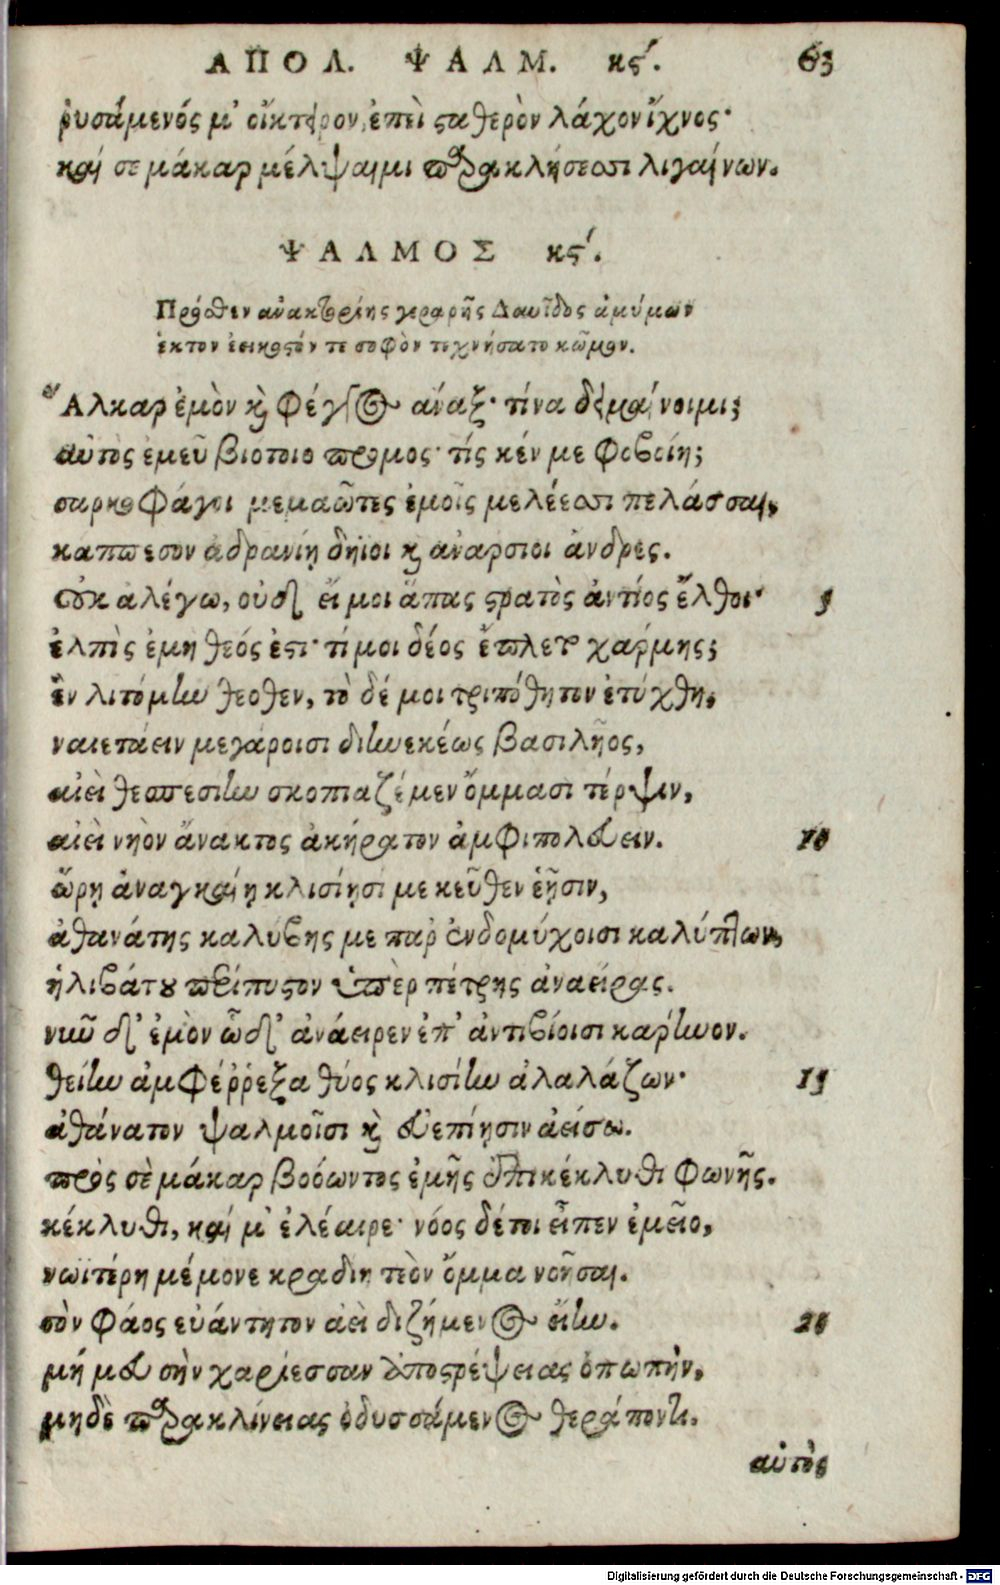 ΑΠΟΛ. ΨΑΛΜ. κϛʹ. 63
ῥυσάμενός μ' οἴκτειρον, ἐπεὶ σταθερὸν λάχον ἴχνος·
καί σε μάκαρ μέλψαιμι παρακλήσεσσι λιγαίνων.
ΨΑΛΜΟΣ κϛʹ.
Πρόσθεν ἀνακτορίης γεραρῆς Δαυῖδος ἀμύμων
ἕκτον ἐεικοστόν τε σοφὸν τεχνήσατο κῶμον.
Ἄλκαρ ἐμὸν καὶ φέγγος ἄναξ· τίνα δειμαίνοιμι;
αὐτὸς ἐμεῦ βιότοιο πρόμος· τίς κέν με φοβοίη;
σαρκοφάγοι μεμαῶτες ἐμοῖς μελέεσσι πελάσσαι,
κάππεσον ἀδρανίῃ δήϊοι καὶ ἀνάρσιοι ἄνδρες.
οὐκ ἀλέγω, οὐδ' εἴ μοι ἅπας στρατὸς ἀντίος ἔλθοι· 5
ἐλπὶς ἐμὴ θεός ἐστι· τί μοι δέος ἔπλετο χάρμης;
ἓν λιτόμην θεόθεν, τὸ δέ μοι τριπόθητον ἐτύχθη,
ναιετάειν μεγάροισι διηνεκέως βασιλῆος,
αἰεὶ θεσπεσίην σκοπιαζέμεν ὄμμασι τέρψιν,
αἰεὶ νηὸν ἄνακτος ἀκήρατον ἀμφιπολεύειν. 10
ὥρῃ ἀναγκαίῃ κλισίῃσί με κεῦθεν ἑῇσιν,
ἀθανάτης καλύβης με παρ' ἐνδομύχοισι καλύπτων,
ἠλιβάτου περίπυστον ὑπὲρ πέτρης ἀναείρας.
νῦν δ' ἐμὸν ὧδ' ἀνάειρεν ἐπ' ἀντιβίοισι κάρηνον.
θείην ἀμφέῤῥεξα θύος κλισίην ἀλαλάζων· 15
ἀθάνατον ψαλμοῖσι καὶ εὐεπίῃσιν ἀείσω.
πρὸς σὲ μάκαρ βοόωντος ἐμῆς ἐπικέκλυθι φωνῆς.
κέκλυθι, καί μ' ἐλέαιρε· νόος δέ τοι εἶπεν ἐμεῖο,
νωϊτέρη μέμονε κραδίη τεὸν ὄμμα νοῆσαι.
σὸν φάος εὐάντητον ἀεὶ διζήμενος εἴην. 20
μή μευ σὴν χαρίεσσαν ἀποστρέψειας ὀπωπὴν,
μηδὲ παρακλίνειας ὀδυσσάμενος θεράποντι.
αὐτὸς
Digitalisierung gefördert durch die Deutsche Forschungsgemeinschaft - DFG